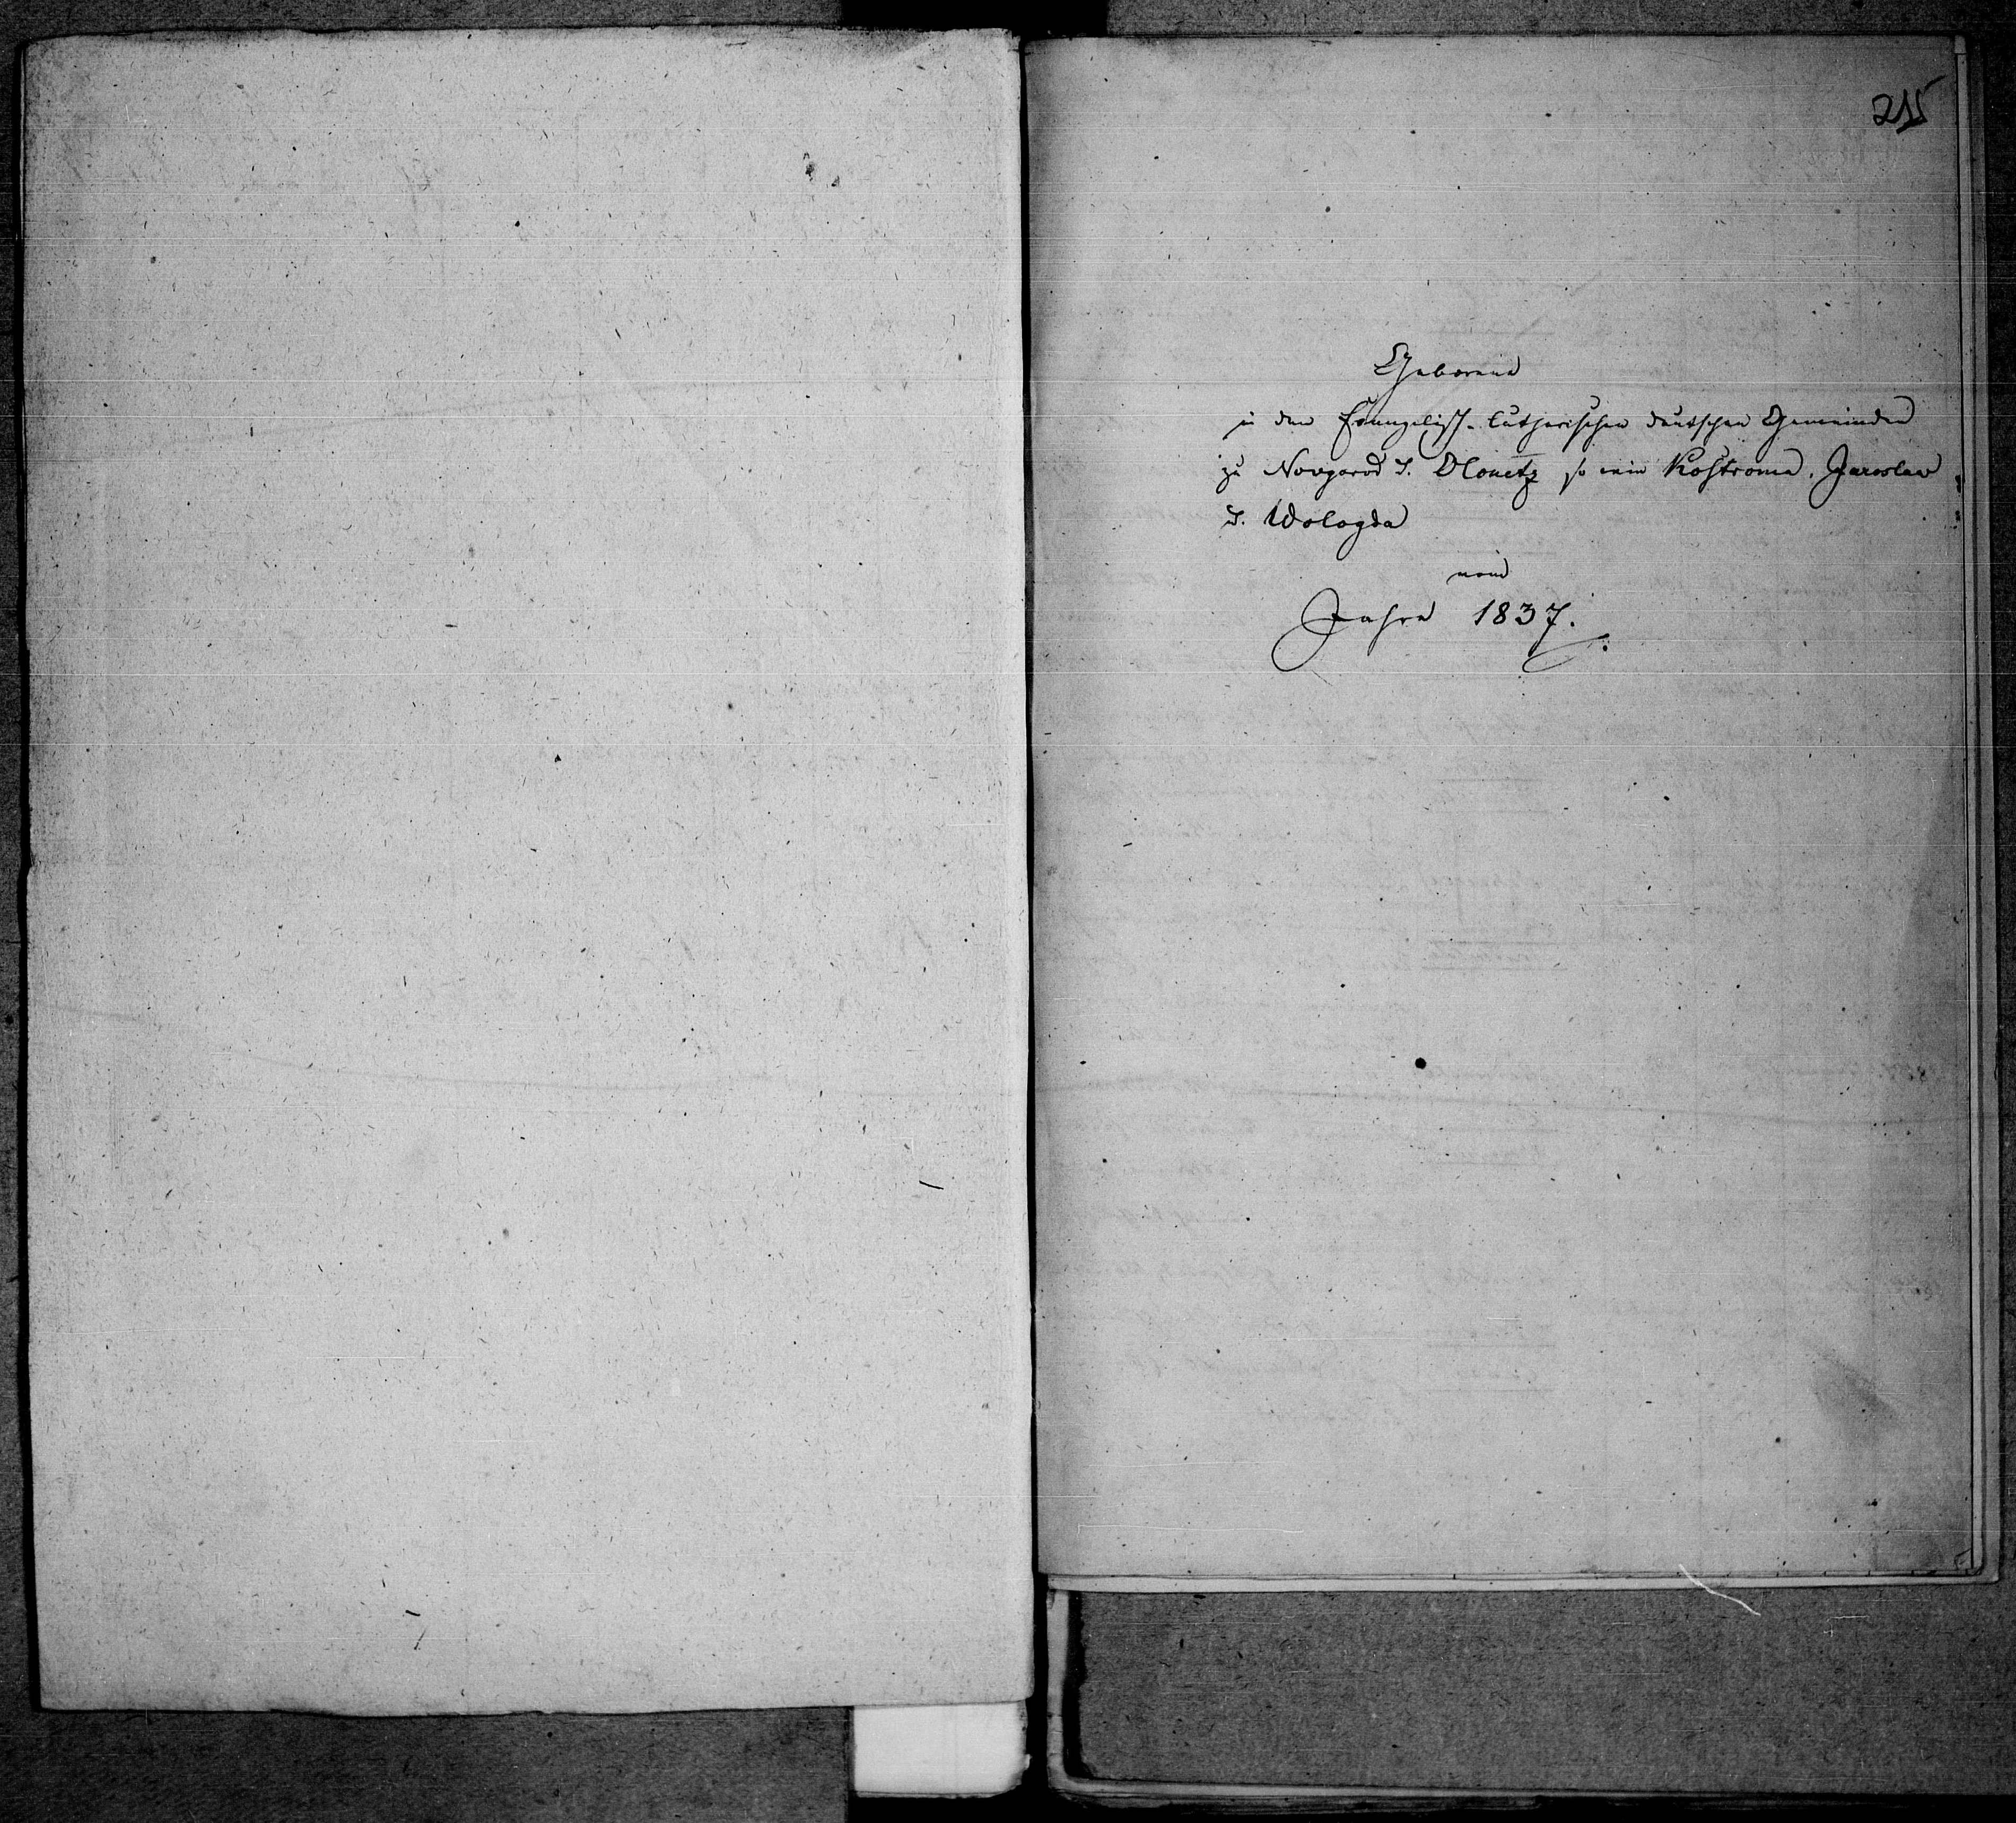 215
Geborene
in den Evangelisch-lutherischen deutschen Gemeinden
zu Novgorod u. Olonetz so wie Kostroma, Jaroslaw
u. Wologda
vom
Jahre 1837.